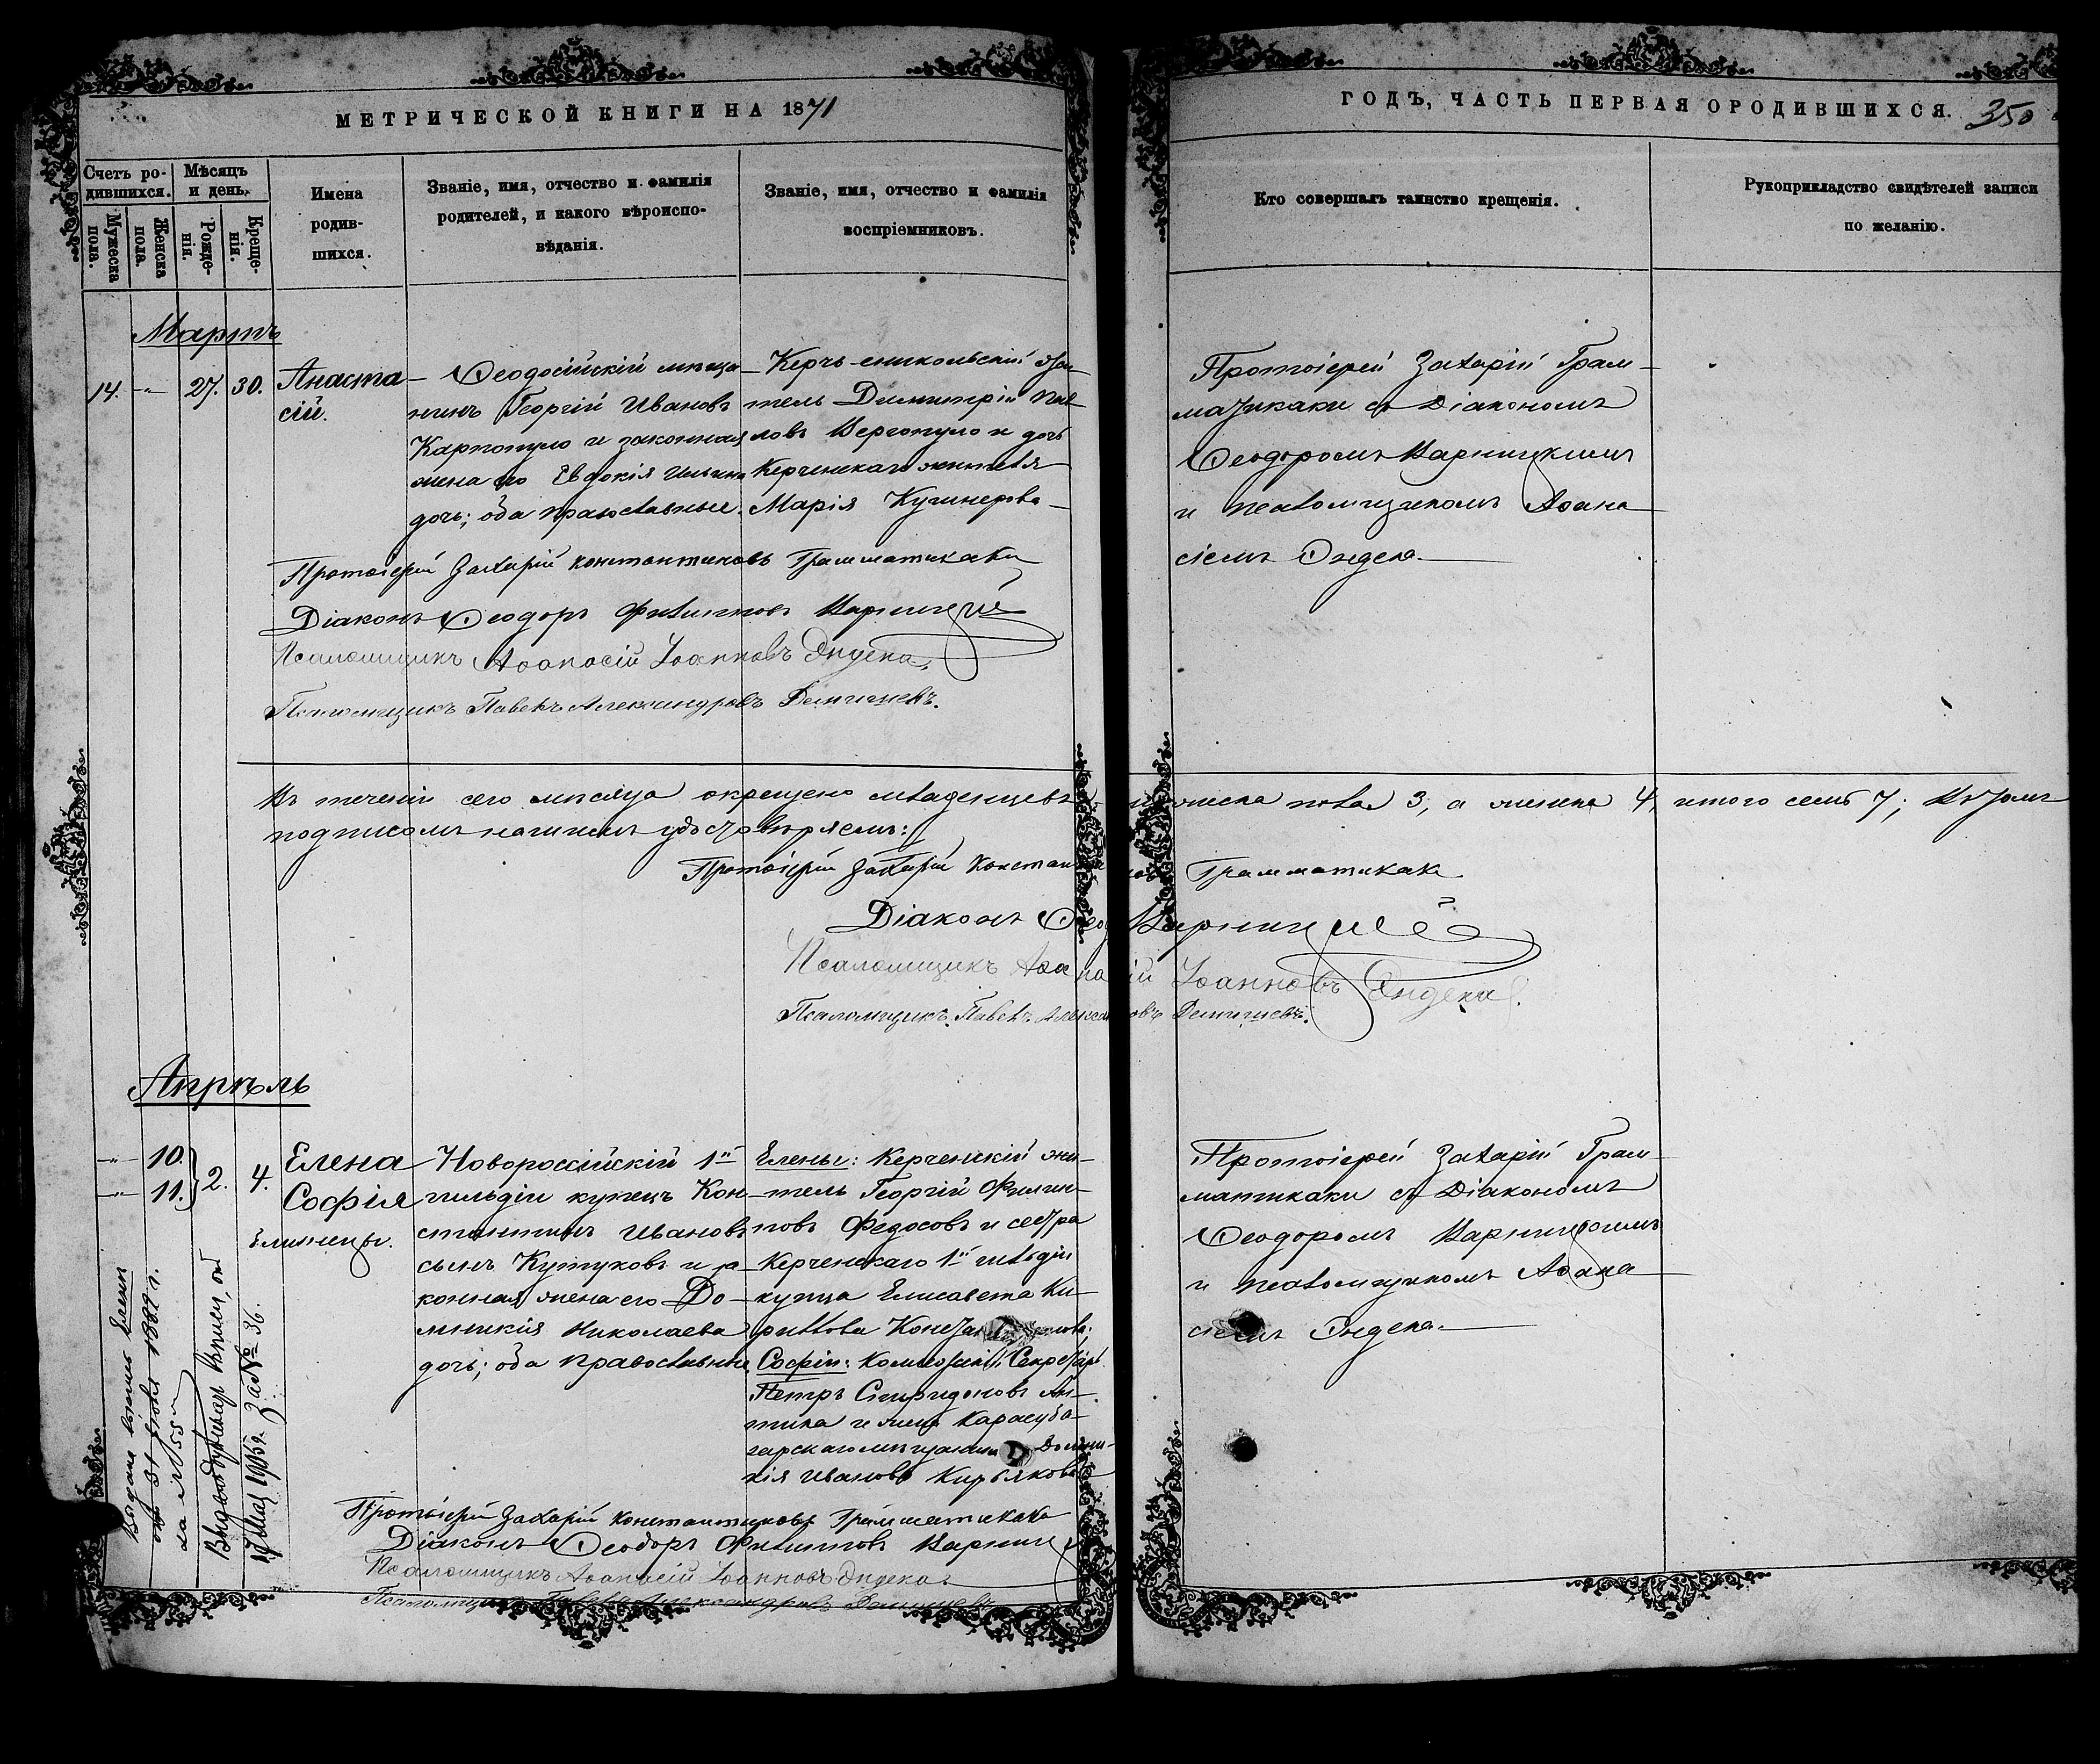 МЕТРИЧЕСКОЙ КНИГИ НА 1871
ГОДЪ, ЧАСТЬ ПЕРВАЯ О РОДИВШИХСЯ. 350
Счетъ ро-
дившихся.
Мужеска
пола.
Женска
пола.
Мѣсяцъ
и день.
Рожде-
нія.
Креще-
нія.
Имена
родив-
шихся.
Званіе, имя, отчество и фамилія
родителей, и какого вѣроиспо-
вѣданія.
Званіе, имя, отчество и фамилія
воспріемниковъ.
Кто совершалъ таинство крещенія.
Рукоприкладство свидѣтелей записи
по желанію.
Мартъ
14. -„- 27. 30.
Анаста-
сій.
Ѳеодосійскій мѣща-
нинъ Георгій Ивановъ
Карпопуло и законная
жена его Евдокія Ильина
дочь; оба православные.
Керчь-еникольскій жи-
тель Димитрій Пав-
ловъ Вергопуло и дочь
Керченскаго жителя
Марія Кушнерова
Протоіерей Захарій Грам-
матикаки съ Діакономъ
Ѳеодоромъ Варницкимъ
и псаломщикомъ Аѳана-
сіемъ Эндека.
Протоіерей Захарій Константиновъ Грамматикаки
Діаконъ Ѳеодоръ Филипповъ Варницкій
Псаломщикъ Аѳанасій Іоанновъ Эндека.
Псаломщикъ Павелъ Александровъ
Въ теченіи сего мѣсяца окрещено младенцевъ мужеска пола 3, а женска 4, итого семь 7; въ томъ
подписомъ нашимъ удостовѣряемъ:
Протоіерей Захарій Константиновъ Грамматикаки
Діаконъ Ѳеод Варницкій
Псаломщикъ Аѳанасій Іоанновъ Эндека.
Псаломщикъ Павелъ
Апрѣль
-„- 10. 2. 4.
-„- 11.
Елена
Софія
близнецы.
Новороссійскій 1й
гильдіи купецъ Кон-
стантинъ Ивановъ
сынъ Кутуковъ и за-
конная жена его До-
мникія Николаева
дочь; оба православные.
Елены: Керченскій жи-
тель Георгій Филип-
повъ Федосовъ и сестра
Керченскаго 1й гильдіи
купца Елисавета Ки-
риллова
Софіи: Коллежскій Секретарь
Петръ Спиридоновъ Ан-
тика и жена Карасуба-
зарскаго мѣщанина Домни-
кія Иванова Кирьякова
Протоіерей Захарій Грам-
матикаки съ Діакономъ
Ѳеодоромъ Варницкимъ
и псаломщикомъ Аѳана-
сіемъ Эндека.
Протоіерей Захарій Константиновъ Грамматикаки
Діаконъ Ѳеодоръ Филипповъ Варницкій
Псаломщикъ Аѳанасій Іоанновъ Эндека.
Псаломщикъ Павелъ Александровъ
Елены
31 1889 г.
за № 55
17 Мая 1905 г. за № 36.